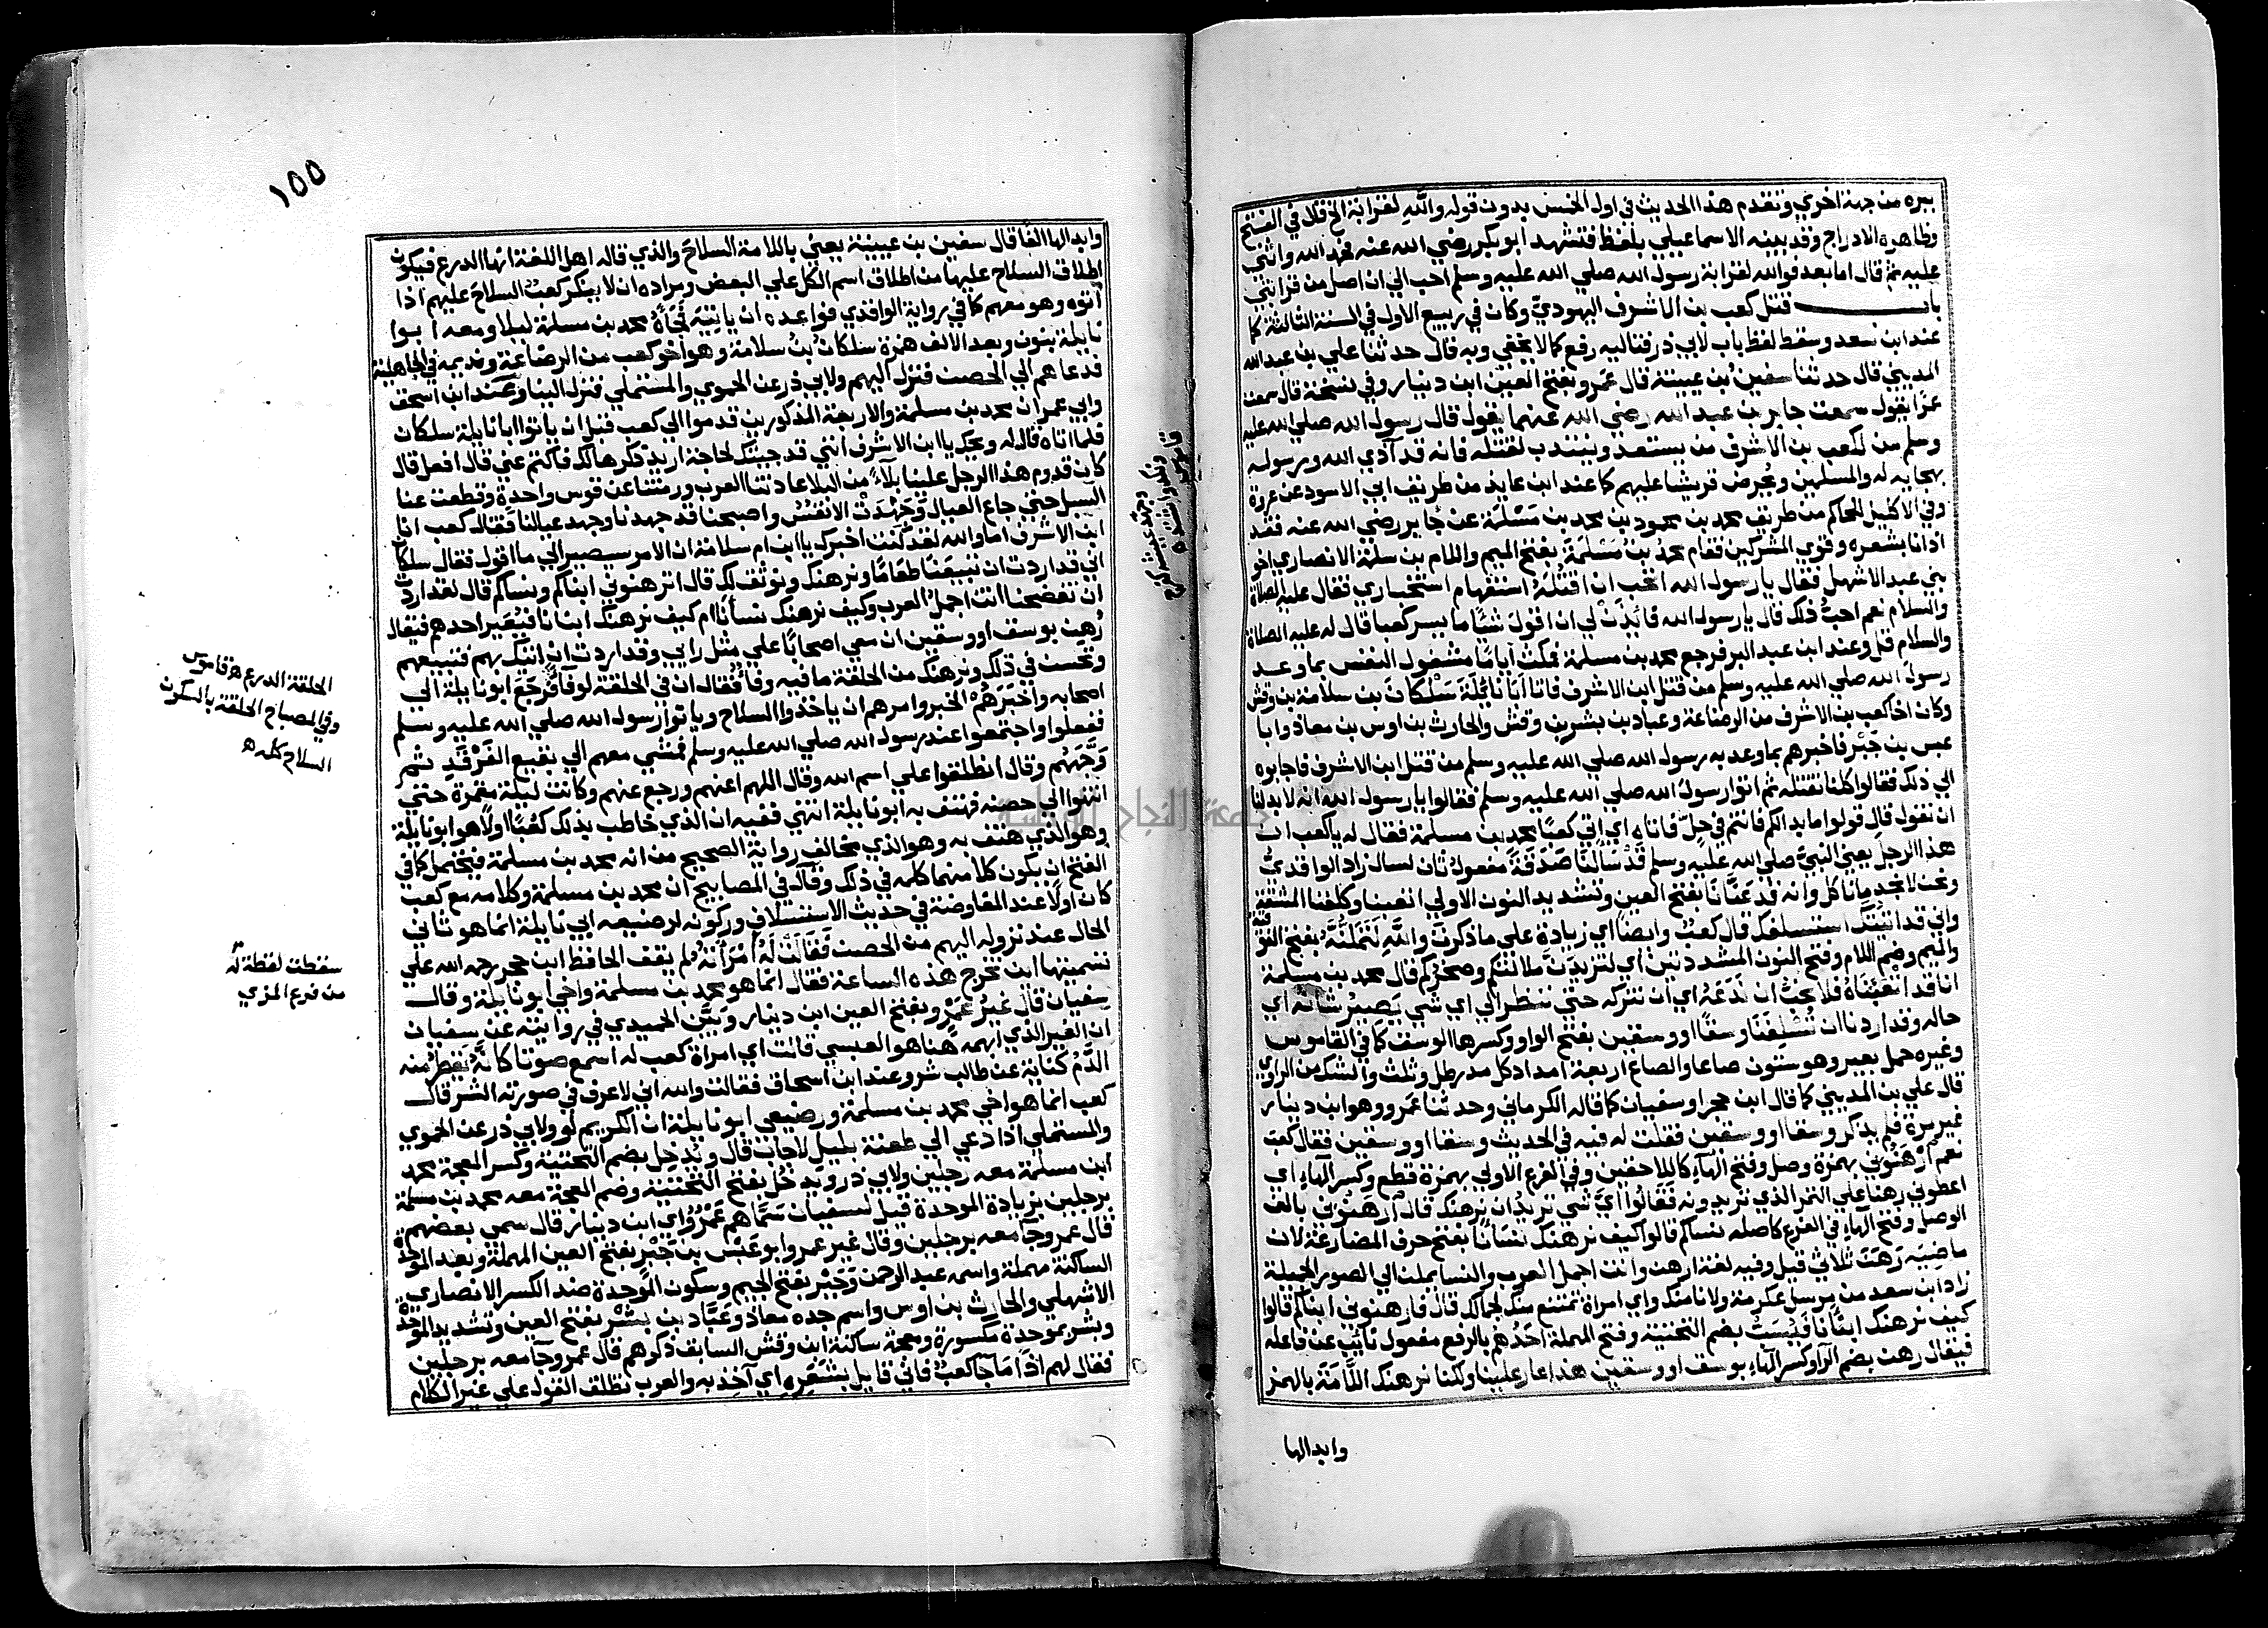 بيره من جهة اخري وتقدم هذا الحديث في اول الخمس بدون قوله والله لقرابة الخ قال في الفتح
وظاهره الادراج وقد بينه الاسماعيلي بلفظ فتشهد ابو بكر رضي الله عنه فحمد الله واثني
عليه ثم قال اما بعد فوالله لقرابة رسول الله صلي الله عليه وسلم احب الي ان اصل من قرابتي
باب قتل كعب بن الاشرف اليهودي وكان في ربيع الاول في السنة الثالثة كما
عند ابن سعد وسقط لفظ باب لابي ذر فتاليه رفع كما لا يخفي وبه قال حدثنا علي بن عبد الله
المديني قال حدثنا سفين بن عيينة قال عمرو بفتح العين ابن دينار وفي نسخة قال سمعت
عمرا يقول سمعت جابر بن عبد الله رضي الله عنهما يقول قال رسول الله صلي الله عليه
وسلم من لكعب بن الاشرف من يستعد وينتدب لقتله فانه قد آذي الله ورسوله
بهجايه له وللمسلمين ويحرض قريشا عليهم كما عند ابن عايذ من طريق ابي الاسود عن عروة
وفي الاكليل للحاكم من طريق محمد بن محمود بن محمد بن مسلمة عن جابر رضي الله عنه فقد
اذانا بشعره وقوي المشركين فقام محمد بن مسلمة بفتح الميم واللام بن سلمة الانصاري اخو
بني عبد الاشهل فقال يا رسول الله اتحب ان اقتله استفهام استخباري فقال عليه الصلاة
والسلام نعم احب ذلك قال يا رسول الله فايذن لي ان اقول شيا ما يسر كعبا قال له عليه الصلاة
والسلام قل وعند ابن عبد البر فرجع محمد بن مسلمة فمكث اياما مشغول النفس بما وعد
رسول الله صلي الله عليه وسلم من قتل ابن الاشرف فاتا ابا نايلة سلكان بن سلامة بن وقش
وكان اخا كعب بن الاشرف من الرضاعة وعباد بن بشر بن وقش والحارث بن اوس بن معاذ وابا
عبس بن جبر فاخبرهم بما وعد به رسول الله صلي الله عليه وسلم من قتل ابن الاشرف فاجابوه
الي ذلك فقالوا كلنا نقتله ثم اتوا رسول الله صلي الله عليه وسلم فقالوا يا رسول الله انه لا بد لنا
ان نقول قال قولوا ما بدا لكم فانتم في حل فاتاه اي اتي كعبا محمد بن مسلمة فقال له يا كعب ان
هذا الرجل يعني النبي صلي الله عليه وسلم قد سالنا صدقة مفعول ثان لسال زاد الواقدي
ونحن لا نجد ما ناكل وانه قد عنانا بفتح العين وتشديد النون الاولي اتعبنا وكلفنا المشقة
واني قد اتيتك استسلفك قال كعب وايضا اي زيادة علي ما ذكرت والله لتملنه بفتح الفوقية
والميم وضم اللام وفتح النون المشددتين اي لتزيدن ملالتكم وضجركم قال محمد بن مسلمة
انا قد اتبعناه فلا نحب ان ندعه اي ان نتركه حتي ننظر الي اي شي يصير شانه اي
حاله وقد اردنا ان تسلفنا وسقا او وسقين بفتح الواو وكسرها الوسق كما في القاموس
وغيره حمل بعير وهو ستون صاعا والصاع اربعة امداد كل مد رطل وثلث والشك من الراوي
قال علي بن المديني كما قال ابن حجر او سفيان كما قاله الكرماني وحدثنا عمرو وهو ابن دينار
غير مرة فلم يذكر وسقا او وسقين فقلت له فيه في الحديث وسقا او وسقين فقال كعب
نعم ارهنوني بهمزة وصل وفتح الهاء كاللاحقين وفي الفرع الاولي بهمزة قطع وكسر الهاء اي
اعطوني رهنا علي التمر الذي تريدونه فقالوا اي شي تريد ان نرهنك قال ارهنوني بالف
الوصل وفتح الهاء في الفرع كاصله نساكم قالوا كيف نرهنك نسانا بفتح حرف المضارعة لان
ماضيه رهن ثلاثي قيل وفيه لغة ارهن وانت اجمل العرب والنسا يملن الي الصور الجميلة
زاد ابن سعد من مرسل عكرمة ولا نامنك واي امراة تمتنع منك لجمالك قال فارهنوني ابناكم قالوا
كيف نرهنك ابنانا فيسب بضم التحتية وفتح المهملة احدهم بالرفع مفعول نائب عن فاعله
فيقال رهن بضم الرا وكسر الهاء بوسق او وسقين هذا عار علينا ولكنا نرهنك اللامة بالهمز
وابدالها
١٥٥
وابدالها الفا قال سفين بن عيينة يعني باللامة السلاح والذي قاله اهل اللغة انها الدرع فيكون
اطلاق السلاح عليها من اطلاق اسم الكل علي البعض ومراده ان لا ينكر كعب السلاح عليهم اذا
أتوه وهو معهم كما في رواية الواقدي فواعده ان ياتيه فجاه محمد بن مسلمة ليلا ومعه ابوا
نايلة بنون وبعد الالف همزة سلكان بن سلامة وهو اخو كعب من الرضاعة ونديمه في الجاهلية
فدعاهم الي الحصن فنزل اليهم ولابي ذر عن الحموي والمستملي فنزل الينا وعند ابن اسحق
وابي عمر ان محمد بن مسلمة والاربعة المذكورين قدموا الي كعب قبل ان ياتوا ابا نايلة سلكان
فلما اتاه قال له ويحك يا ابن الاشرف انني قد جيتك لحاجة اريد ذكرها لك فاكتم عني قال افعل قال
كان قدوم هذا الرجل علينا بلاء من البلا عادتنا العرب ورمتنا عن قوس واحدة وقطعت عنا
السبل حتي جاع العيال وجهدت الانفس واصبحنا قد جهدنا وجهد عيالنا فقال كعب انا
ابن الاشرف اما والله لقد كنت اخبرك يا ابن ام سلامة ان الامر سيصير الي ما اقول فقال سلكان
اني قد اردت ان تبيعنا طعاما ونرهنك ونوثق لك قال اترهنوني ابناكم ونساكم قال لقد اردت
ان تفضحنا انت اجمل العرب وكيف نرهنك نسانا ام كيف نرهنك ابنانا فيعير احدهم فيقال
رهن بوسق او وسقين ان معي اصحابا علي مثل رايي وقد اردت ان اتيك بهم فتبيعهم
وتحسن في ذلك ونرهنك من الحلقة ما فيه وفا فقال ان في الحلقة لوفا فرجع ابو نايلة الي
اصحابه واخبرهم الخبر وامرهم ان ياخذوا السلاح وياتوا رسول الله صلي الله عليه وسلم
ففعلوا واجتمعوا عند رسول الله صلي الله عليه وسلم فمشي معهم الي بقيع الغرقد ثم
وجههم وقال انطلقوا علي اسم الله وقال اللهم اعنهم ورجع عنهم وكانت ليلة مقمرة حتي
انتهوا الي حصنه فهتف به ابو نايلة انتهي ففيه ان الذي خاطب بذلك كعبا اولا هو ابو نايلة
وهو الذي هتف به وهو الذي يخالف رواية الصحيح من انه محمد بن مسلمة فيحتمل كما في
الفتح ان يكون كلا منهما كلمه في ذلك وقال في المصابيح ان محمد بن مسلمة وكلامه مع كعب
كان اولا عند المفاوضة في حديث الاستسلاف وركونه لرضيعه ابي نايلة انما هو ثاني
الحال عند نزوله اليهم من الحصن فقالت له امراته لم يقف الحافظ ابن حجر رحمه الله علي
تسميتها اين تخرج هذه الساعة فقال انما هو محمد بن مسلمة واخي ابو نايلة وقال
سفيان قال غير عمرو بفتح العين ابن دينار وبين الحميدي في روايته عن سفيان
ان الغير الذي ابهمه هنا هو العبسي قالت اي امراة كعب له اسمع صوتا كانه يقطر منه
الدم كناية عن طالب شر وعند ابن اسحاق فقالت والله اني لاعرف في صوته الشر قال
كعب انما هو اخي محمد بن مسلمة ورضيعي ابو نايلة ان الكريم لو ولابي ذر عن الحموي
والمستملي اذا دعي الي طعنة بليل لاجاب قال ويدخل بضم التحتية وكسر المعجمة محمد
ابن مسلمة معه رجلين ولابي ذر ويدخل بفتح التحتية وضم المعجمة معه محمد بن مسلمة
برجلين بزيادة الموحدة قيل لسفيان سماهم عمرو اي ابن دينار قال سمي بعضهم
قال عمرو جا معه برجلين وقال غير عمرو ابو عبس بن جبر بفتح العين المهملة وبعد الموحدة
الساكنة مهملة واسمه عبد الرحمن وجبر بفتح الجيم وسكون الموحدة ضد الكسر الانصاري
الاشهلي والحارث بن اوس واسم جده معاذ وعباد بن بشر بفتح العين وتشديد الموحدة
وبشر بموحدة مكسورة ومعجمة ساكنة ابن وقش السابق ذكرهم قال عمرو جا معه برجلين
فقال لهم اذا ما جا كعب فاني قايل بشعره اي آخذ به والعرب تطلق القول علي غير الكلام
الحلقة الدرع هـ قاموس
وفي المصباح الحلقة بالسكون
السلاح كله هـ
سقطت لفظة له
من فرع المزي
جامعة النجاح الوطنية